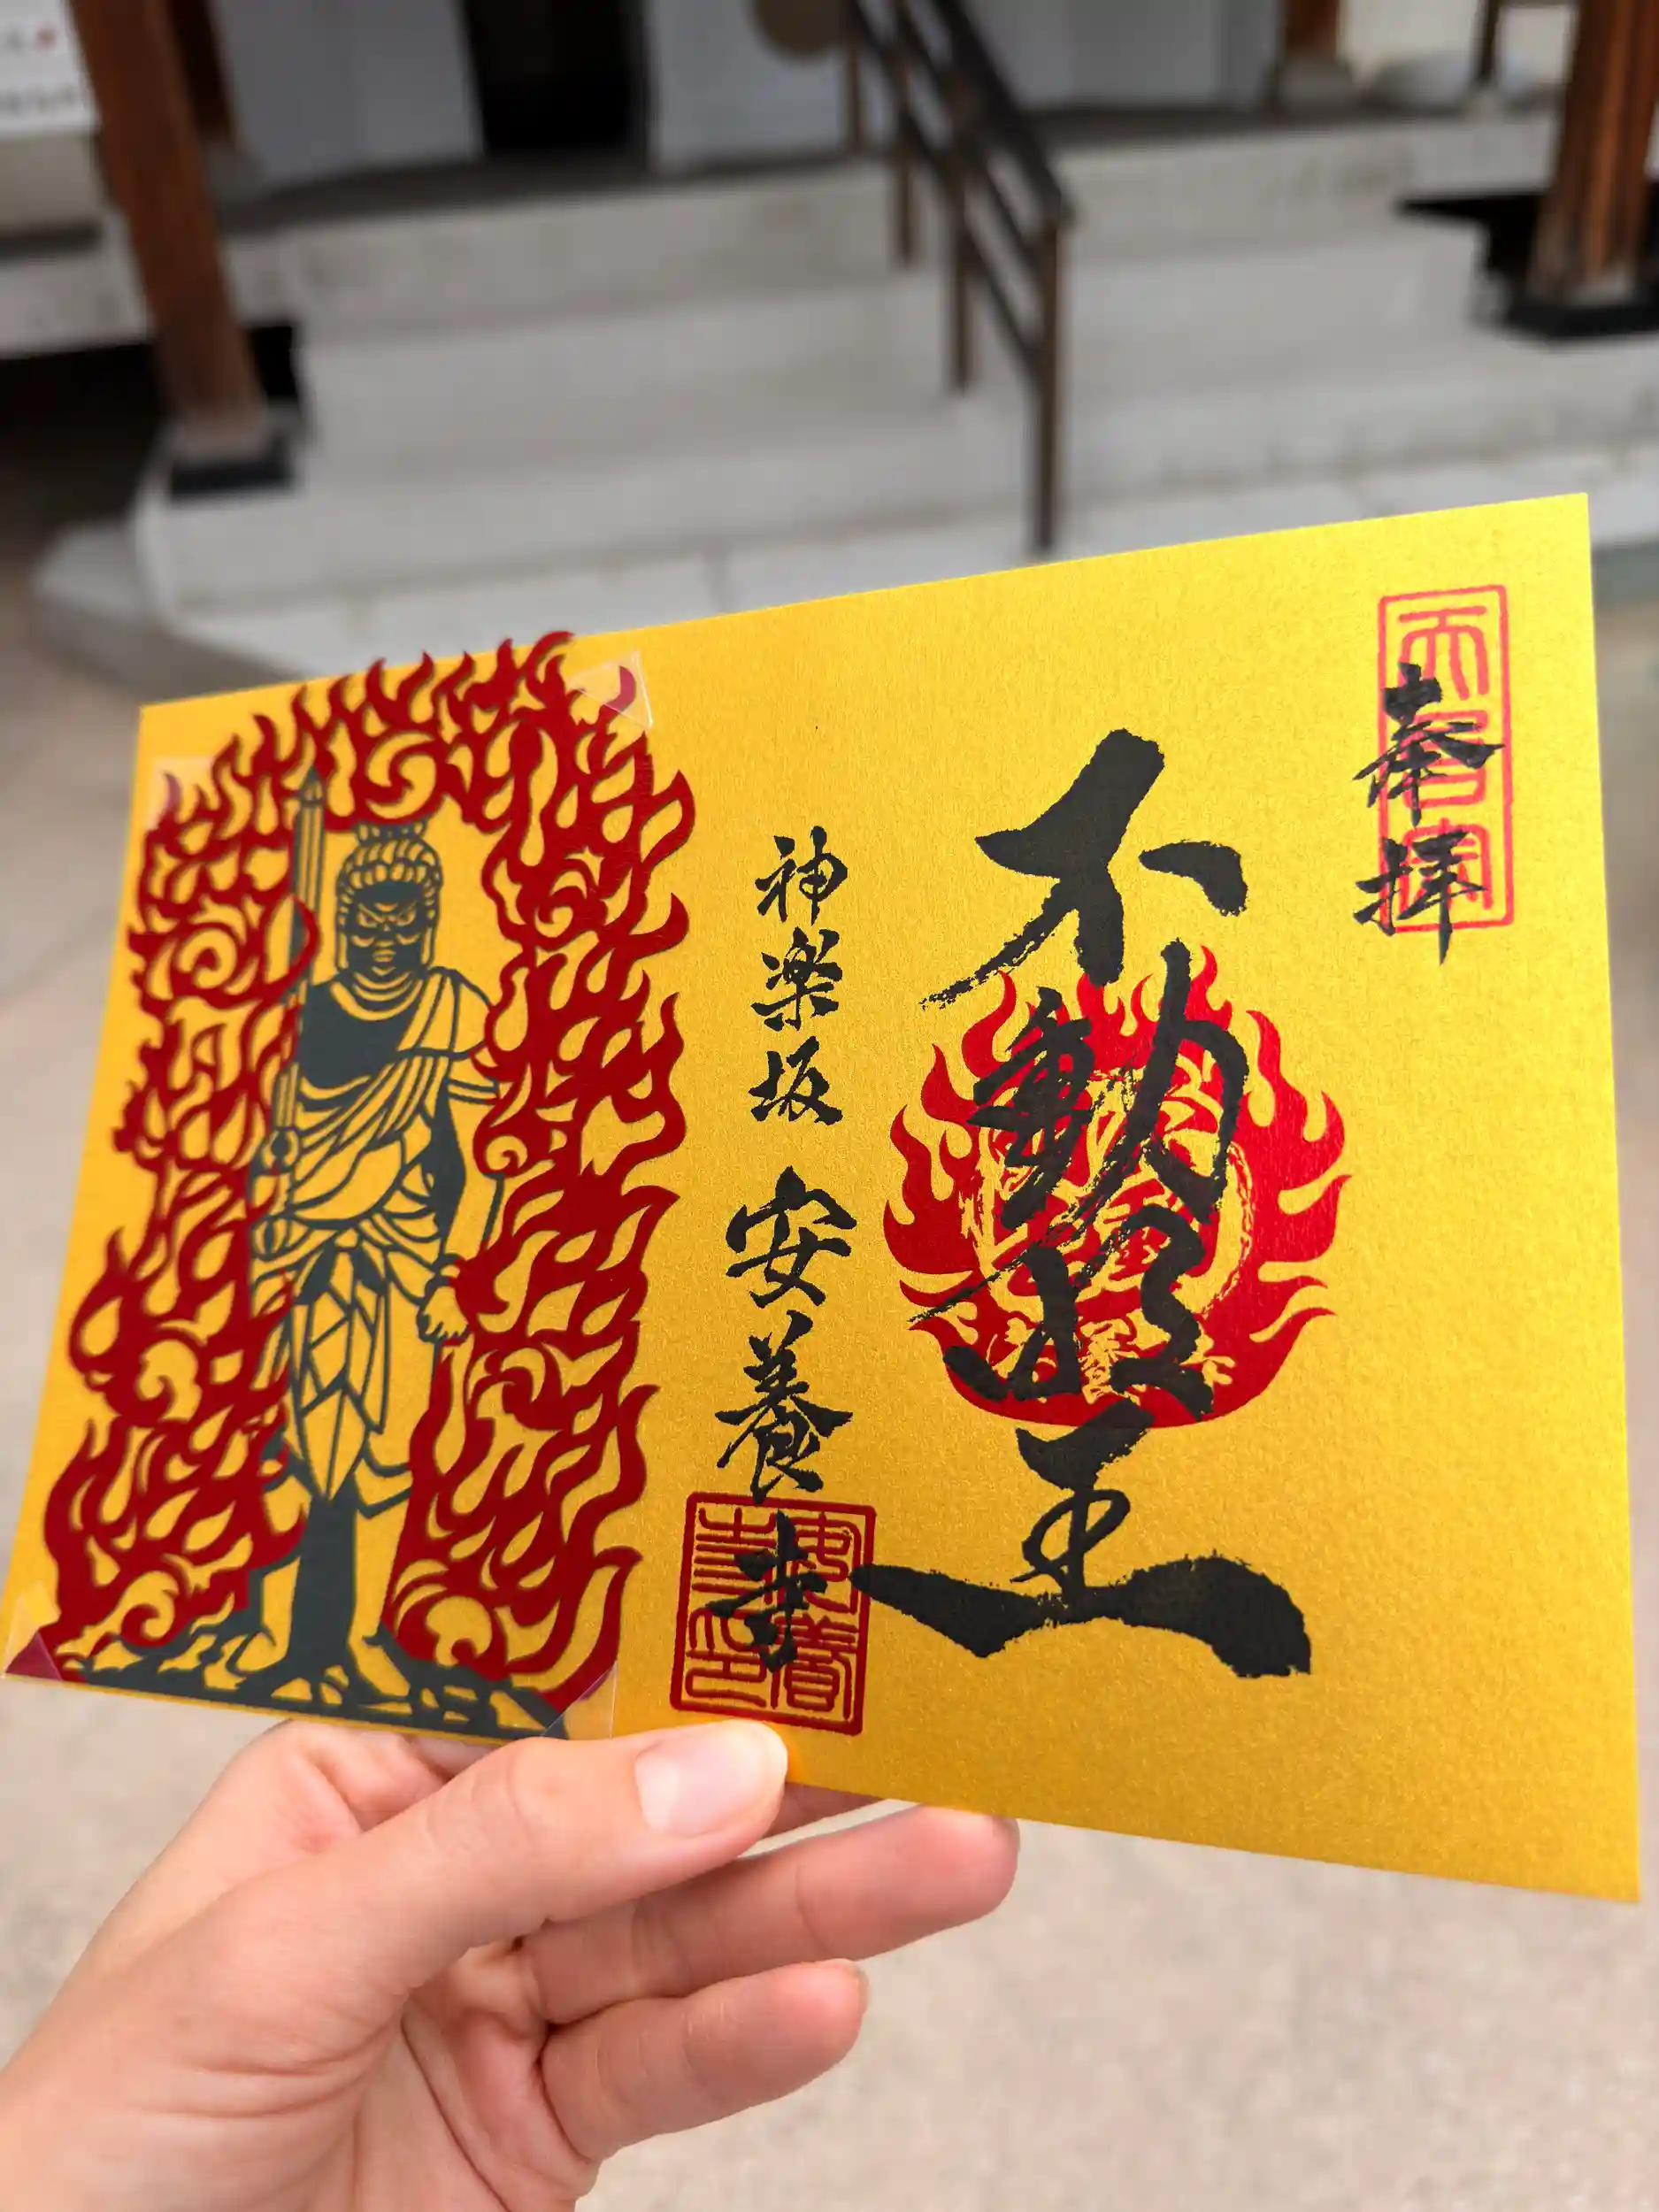 奉拝
不動明王
神楽坂 安養寺